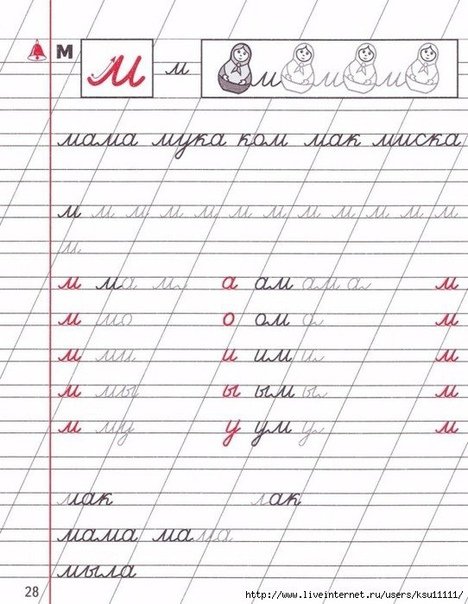 М м м м м м
мама мука ком мак миска
м м м м м м м м м м м м
м
м ма м а ам ам а м
м мо о ом о м
м ми и им и м
м мы ы ым ы м
м му у ум у м
мак лак
мама мама
мыла
28
http://www.liveinternet.ru/users/ksu11111/